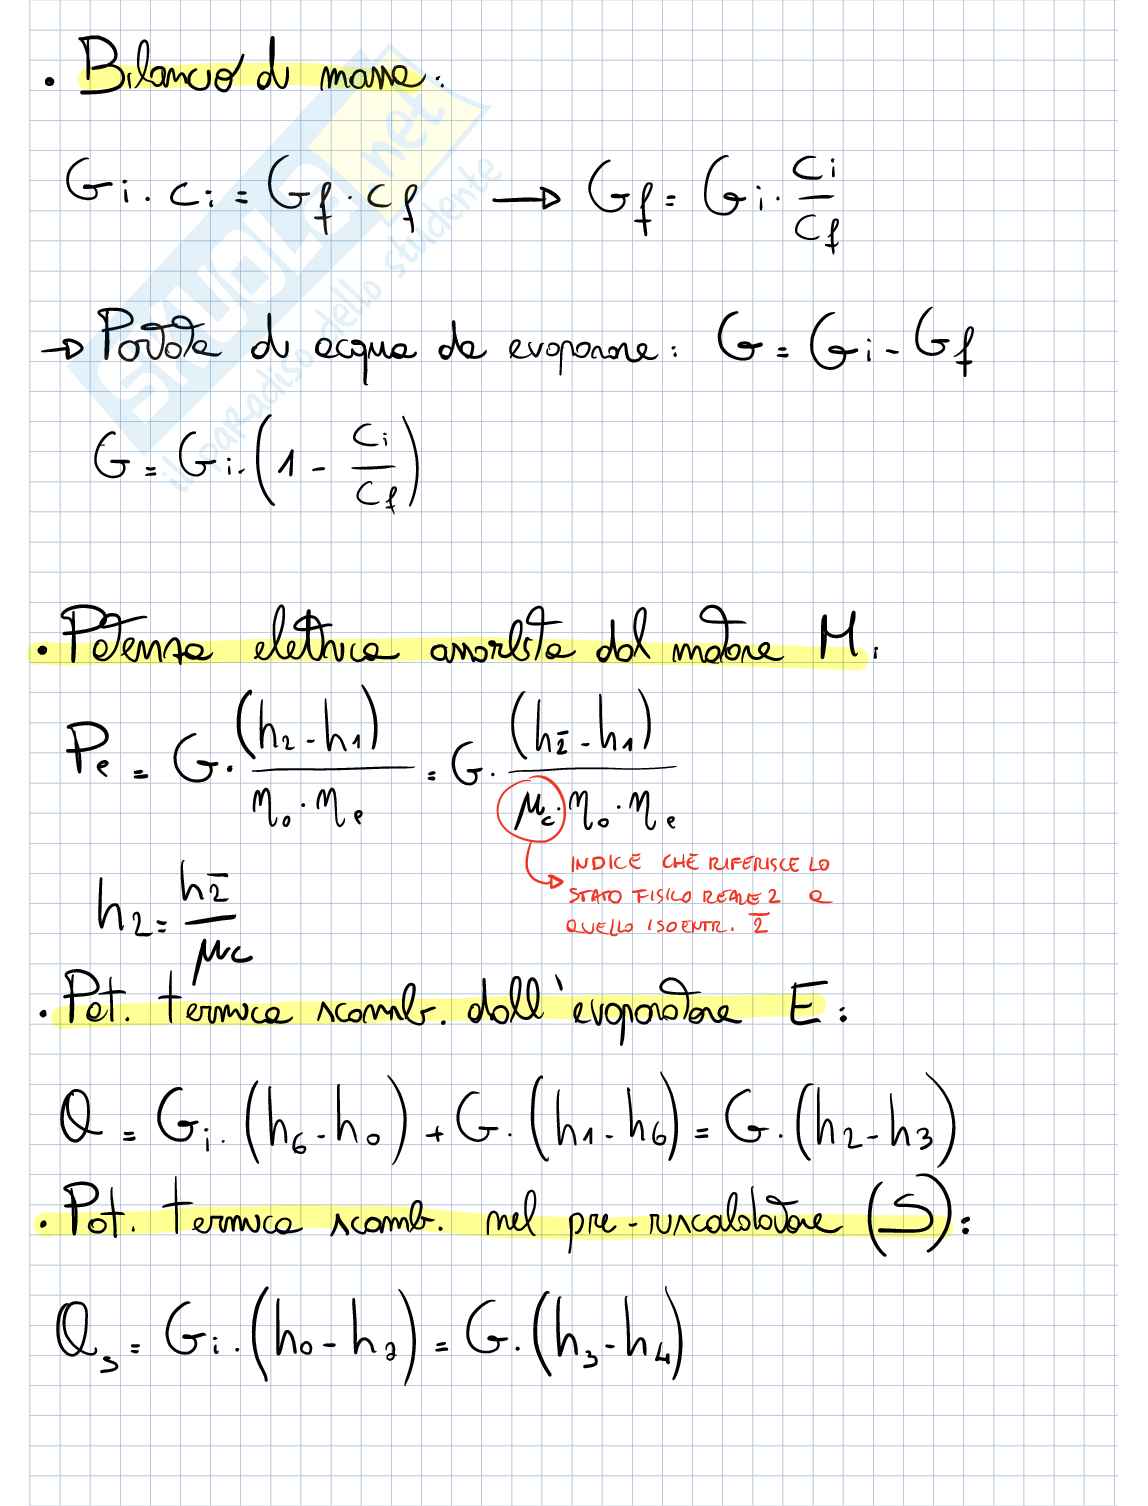 • Bilancio di massa:
Gi · ci = Gf · cf → Gf = Gi · ci/cf
→ Portata di acqua da evaporare: G = Gi - Gf
G = Gi · (1 - ci/cf)
• Potenza elettrica assorbita dal motore M:
Pe = G · (h2 - h1)/(ηo · ηe) = G · (h2̅ - h1)/(μc · ηo · ηe)
INDICE CHE RIFERISCE LO
STATO FISICO REALE 2 a
QUELLO ISOENTR. 2̅
h2 = h2̅/μc
• Pot. termica scamb. dall'evaporatore E:
Q = Gi · (h6 - h0) + G · (h1 - h6) = G · (h2 - h3)
• Pot. termica scamb. nel pre-riscaldatore (S):
Qs = Gi · (h0 - h7) = G · (h3 - h4)
SKUOLA.net
il paradiso dello studente